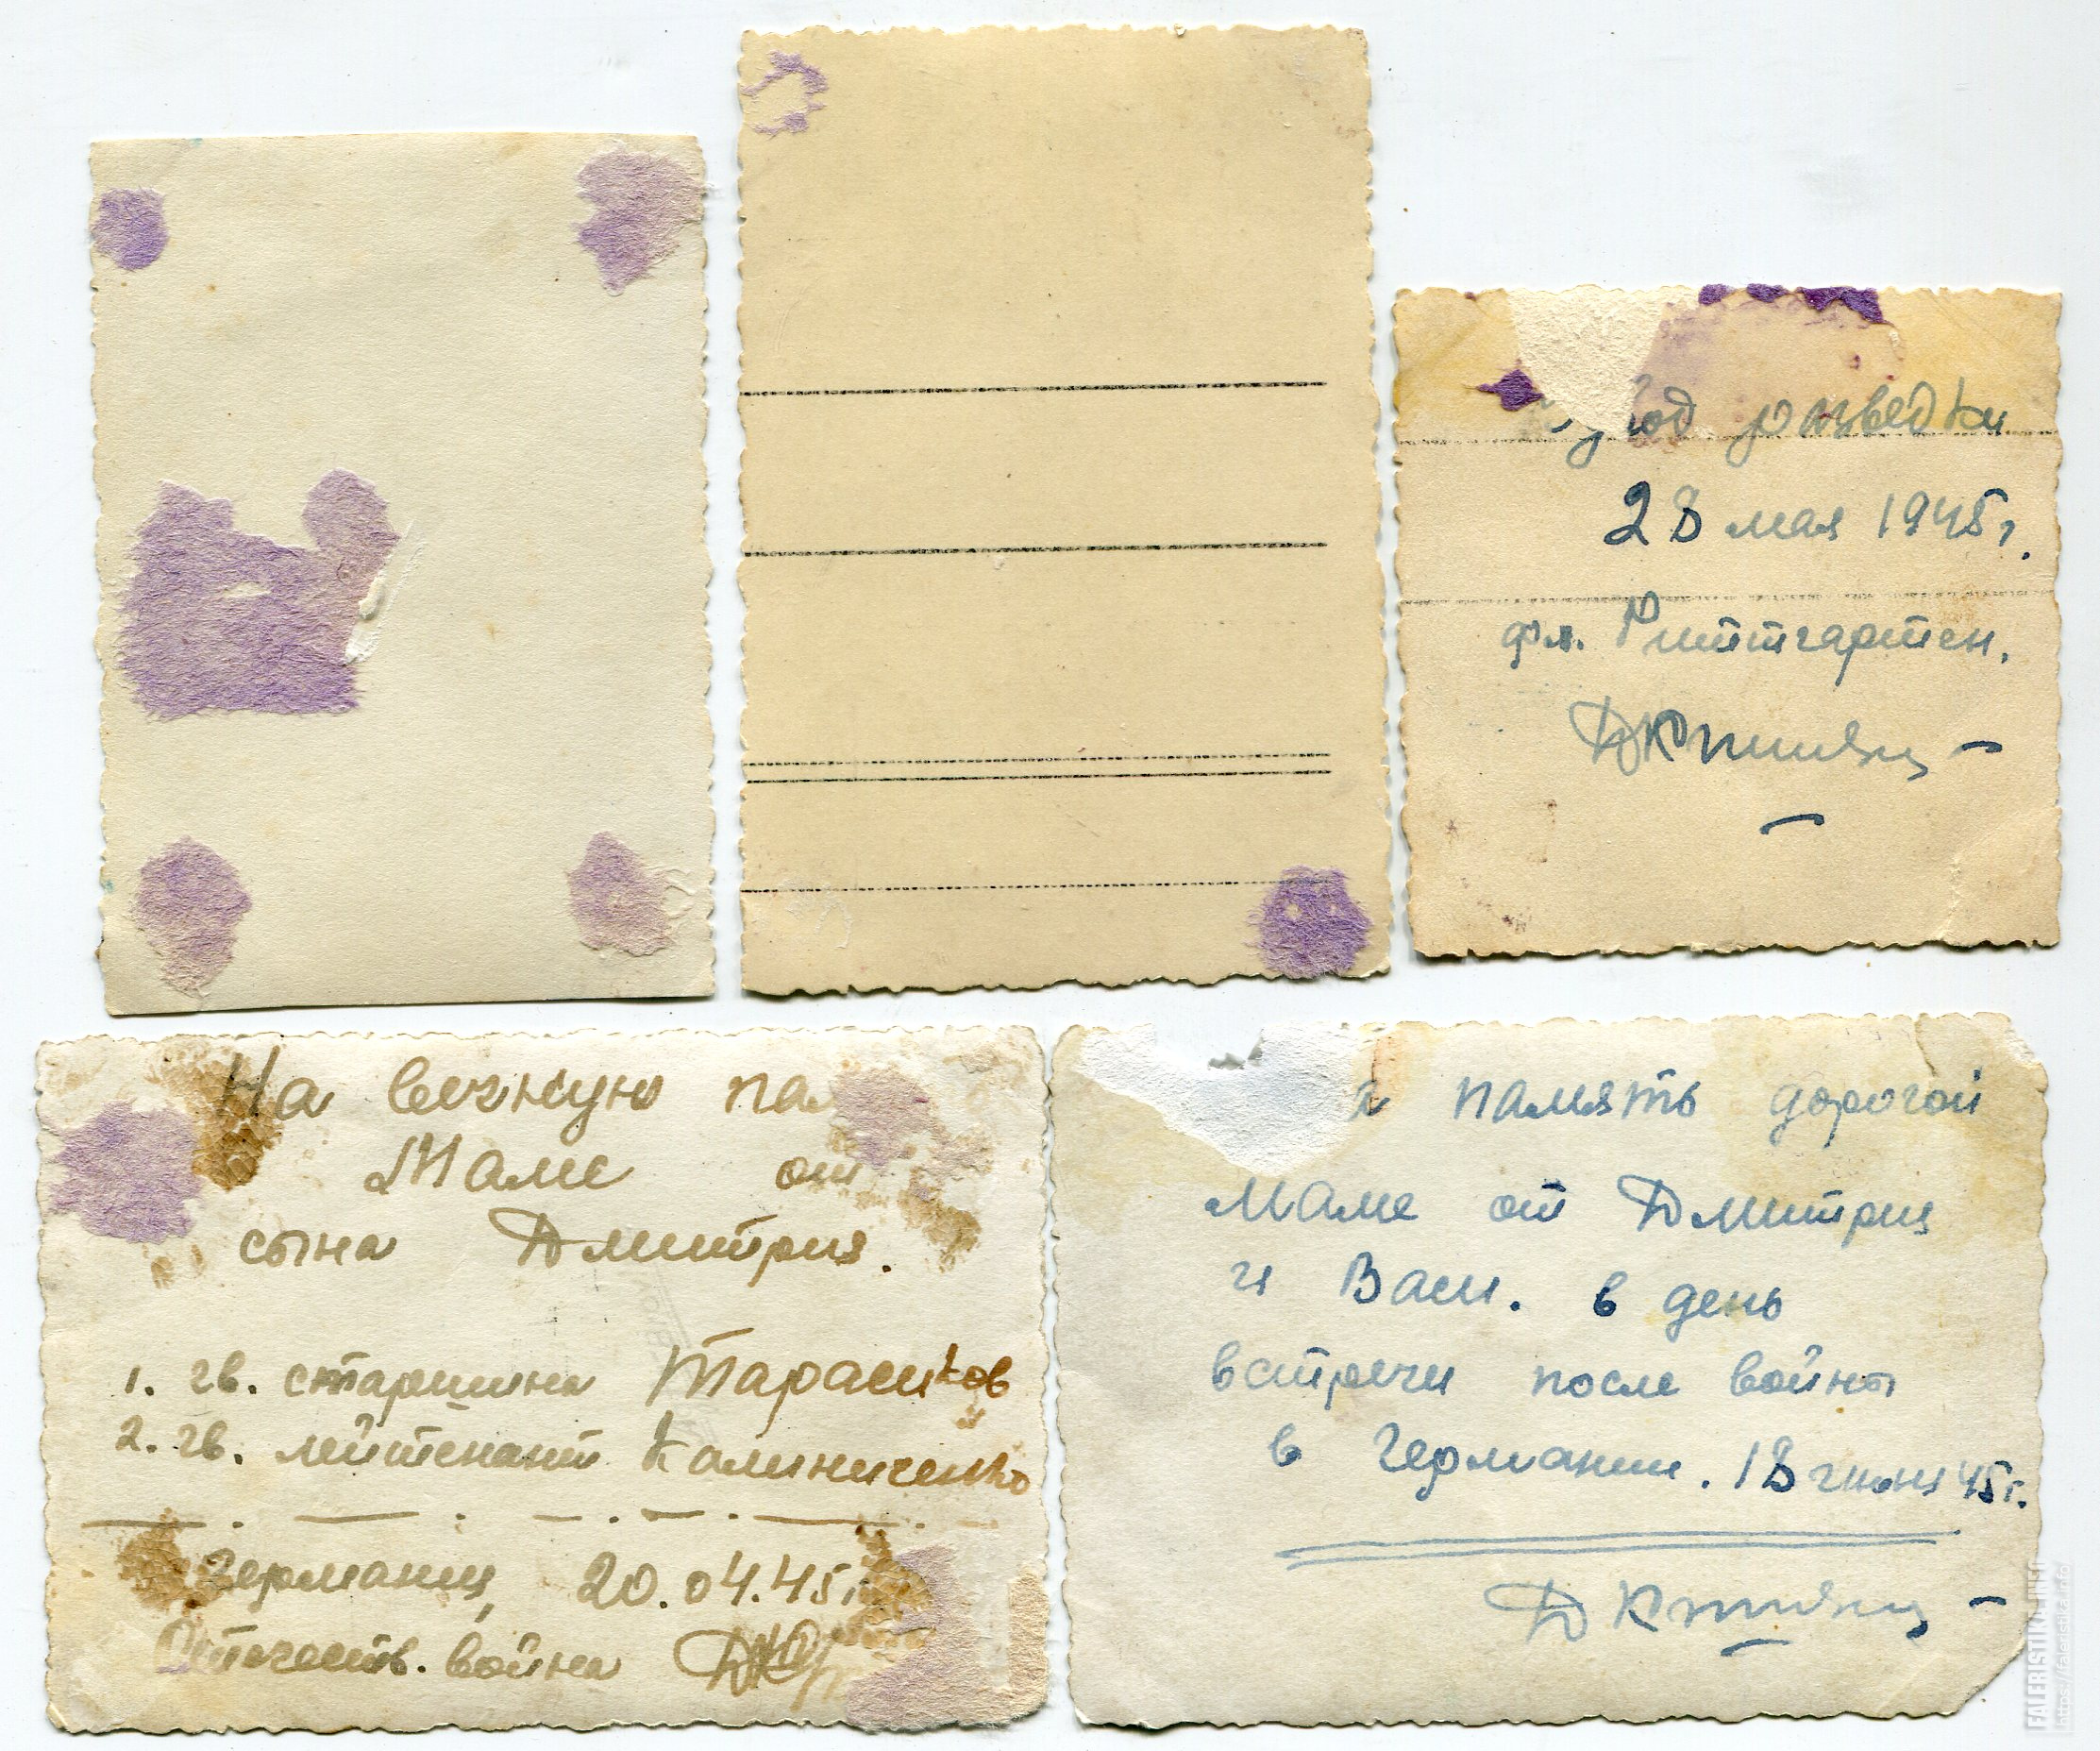 разведки
28 мая 1945г.
фл. Риттгартен.
На вечную па
Маме от
сына Дмитрия.
1. гв. старшина Тарасиков
2. гв. лейтенант Калиниченко
Германия, 20.04.45г
Отечеств. война
а память дорогой
Маме от Дмитрия
и Васи. в день
встречи после войны
в Германии. 18 июня 45г.
FALERISTIKA.INFO
https://faleristika.info